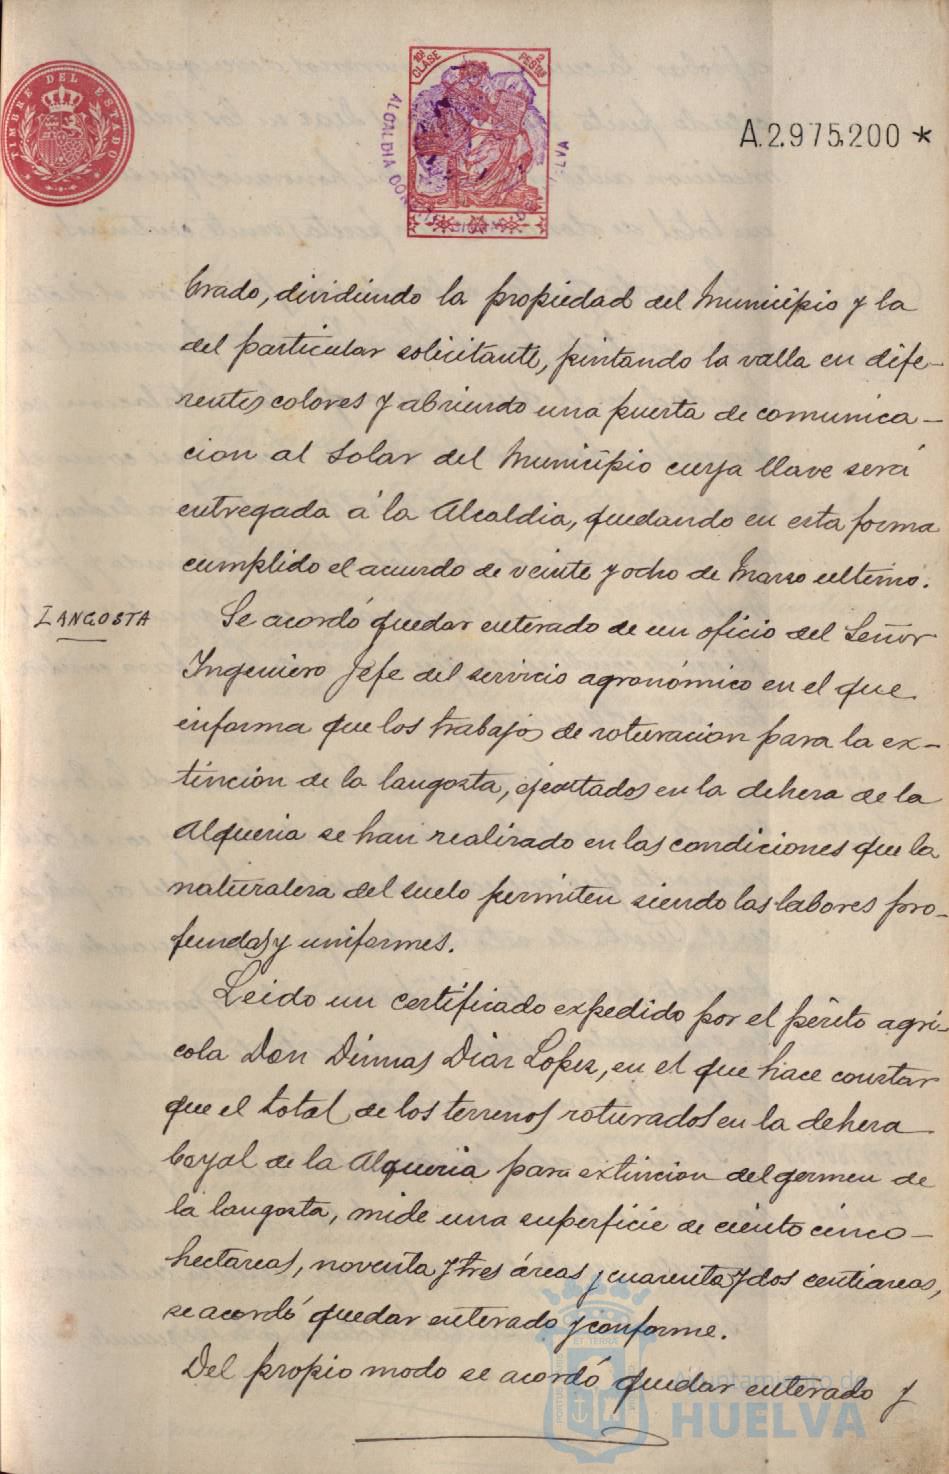 TIMBRE DEL ESTADO
10ª CLASE
2 PESTAS
ALCALDIA CONSTITUCIONAL DE HUELVA
A.2.975,200 *
brado, dividiendo la propiedad del Municipio y la
del particular solicitante, pintando la valla en dife-
rentes colores y abriendo una puerta de comunica-
cion al solar del Municipio cuya llave será
entregada á la Alcaldia, quedando en esta forma
cumplido el acuerdo de veinte y ocho de Marzo ultimo.
LANGOSTA
Se acordó quedar enterado de un oficio del Señor
Ingeniero Jefe del servicio agronómico en el que
informa que los trabajos de roturacion para la ex-
tinción de la langosta, ejecutados en la dehesa de la
Alqueria se han realizado en las condiciones que la
naturaleza del suelo permiten siendo las labores pro-
fundas y uniformes.
Leido un certificado expedido por el périto agrí-
cola Don Dimas Diaz Lopez, en el que hace constar
que el total de los terrenos roturados en la dehesa
boyal de la Alqueria para extincion del germen de
la langosta, mide una superficie de ciento cinco-
hectareas, noventa y tres áreas y cuarenta y dos centiareas,
se acordó quedar enterado y conforme.
Del propio modo se acordó quedar enterado y
Ayuntamiento de
HUELVA